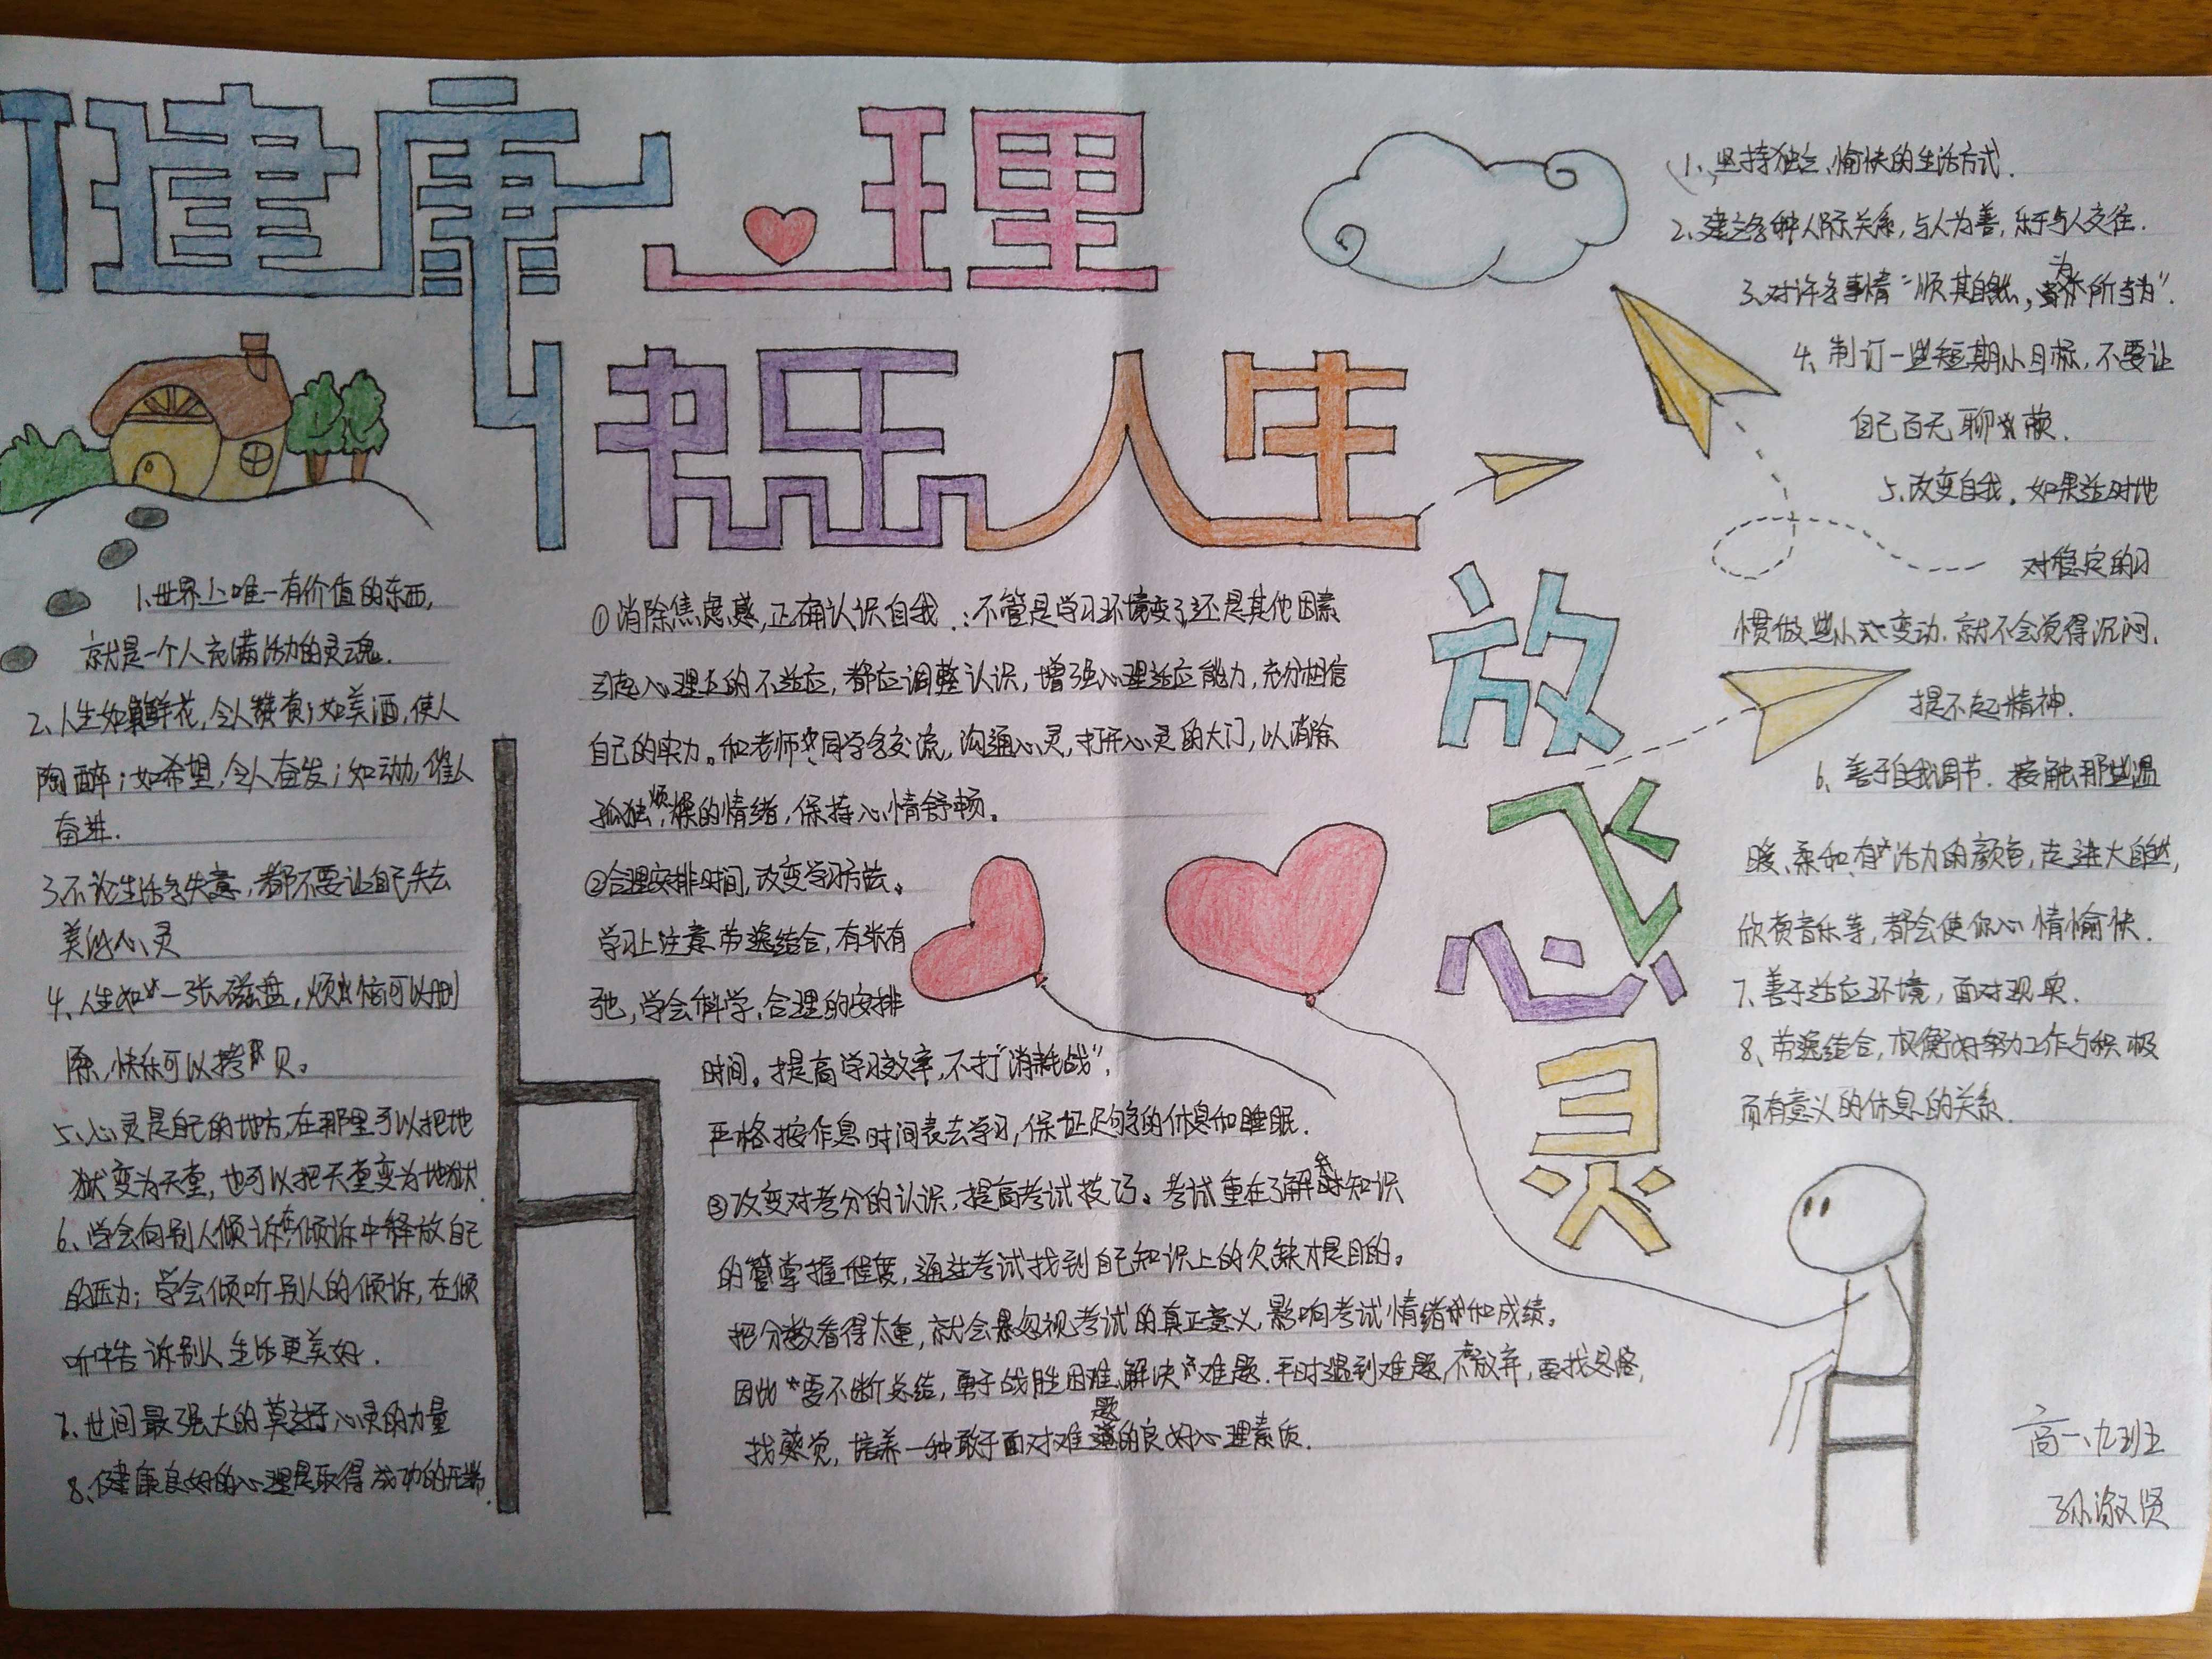 健康心理
快乐人生
放飞心灵
1、世界上唯一有价值的东西,
就是一个人充满活力的灵魂.
2、人生如鲜花,令人赞赏;如美酒,使人
陶醉;如希望,令人奋发;如动力,催人
奋进.
3、不论生活多失意,都不要让自己失去
美的心灵
4、人生如一张磁盘,烦恼可以删
除,快乐可以拷贝。
5、心灵是自己的地方,在那里可以把地
狱变为天堂,也可以把天堂变为地狱.
6、学会向别人倾诉,在倾诉中释放自己
的压力;学会倾听别人的倾诉,在倾
听中告诉别人生活更美好.
7、世间最强大的莫过于心灵的力量
8、健康良好的心理是取得成功的开端.
①消除焦虑感,正确认识自我.:不管是学习环境变了,还是其他因素
引起心理上的不适应,都应调整认识,增强心理适应能力,充分相信
自己的实力。和老师、同学多交流,沟通心灵,打开心灵的大门,以消除
孤独、烦燥的情绪,保持心情舒畅。
②合理安排时间,改变学习方法。
学习上注意劳逸结合,有张有
弛,学会科学、合理的安排
时间。提高学习效率,不打“消耗战”,
严格按作息时间表去学习,保证足够的休息和睡眠.
③改变对考分的认识,提高考试技巧。考试重在了解对知识
的掌握程度,通过考试找到自己知识上的欠缺才是目的。
把分数看得太重,就会忽视考试的真正意义,影响考试情绪和成绩。
因此要不断总结,勇于战胜困难、解决难题.平时遇到难题,不放弃,要找思路,
找感觉,培养一种敢于面对难题的良好心理素质.
1、坚持独立、愉快的生活方式.
2、建立各种人际关系,与人为善,乐于与人交往.
3、对许多事情“顺其自然,为所当为”.
4、制订一些短期小目标,不要让
自己百无聊赖.
5、改变自我.如果适时地
对稳定的习
惯做些小变动.就不会觉得沉闷、
提不起精神.
6、善于自我调节.接触那些温
暖、柔和、有活力的颜色,走进大自然,
欣赏音乐等,都会使你心情愉快.
7、善于适应环境,面对现实.
8、劳逸结合,权衡好努力工作与积极
而有意义的休息的关系.
高一、九班
孙淑贤